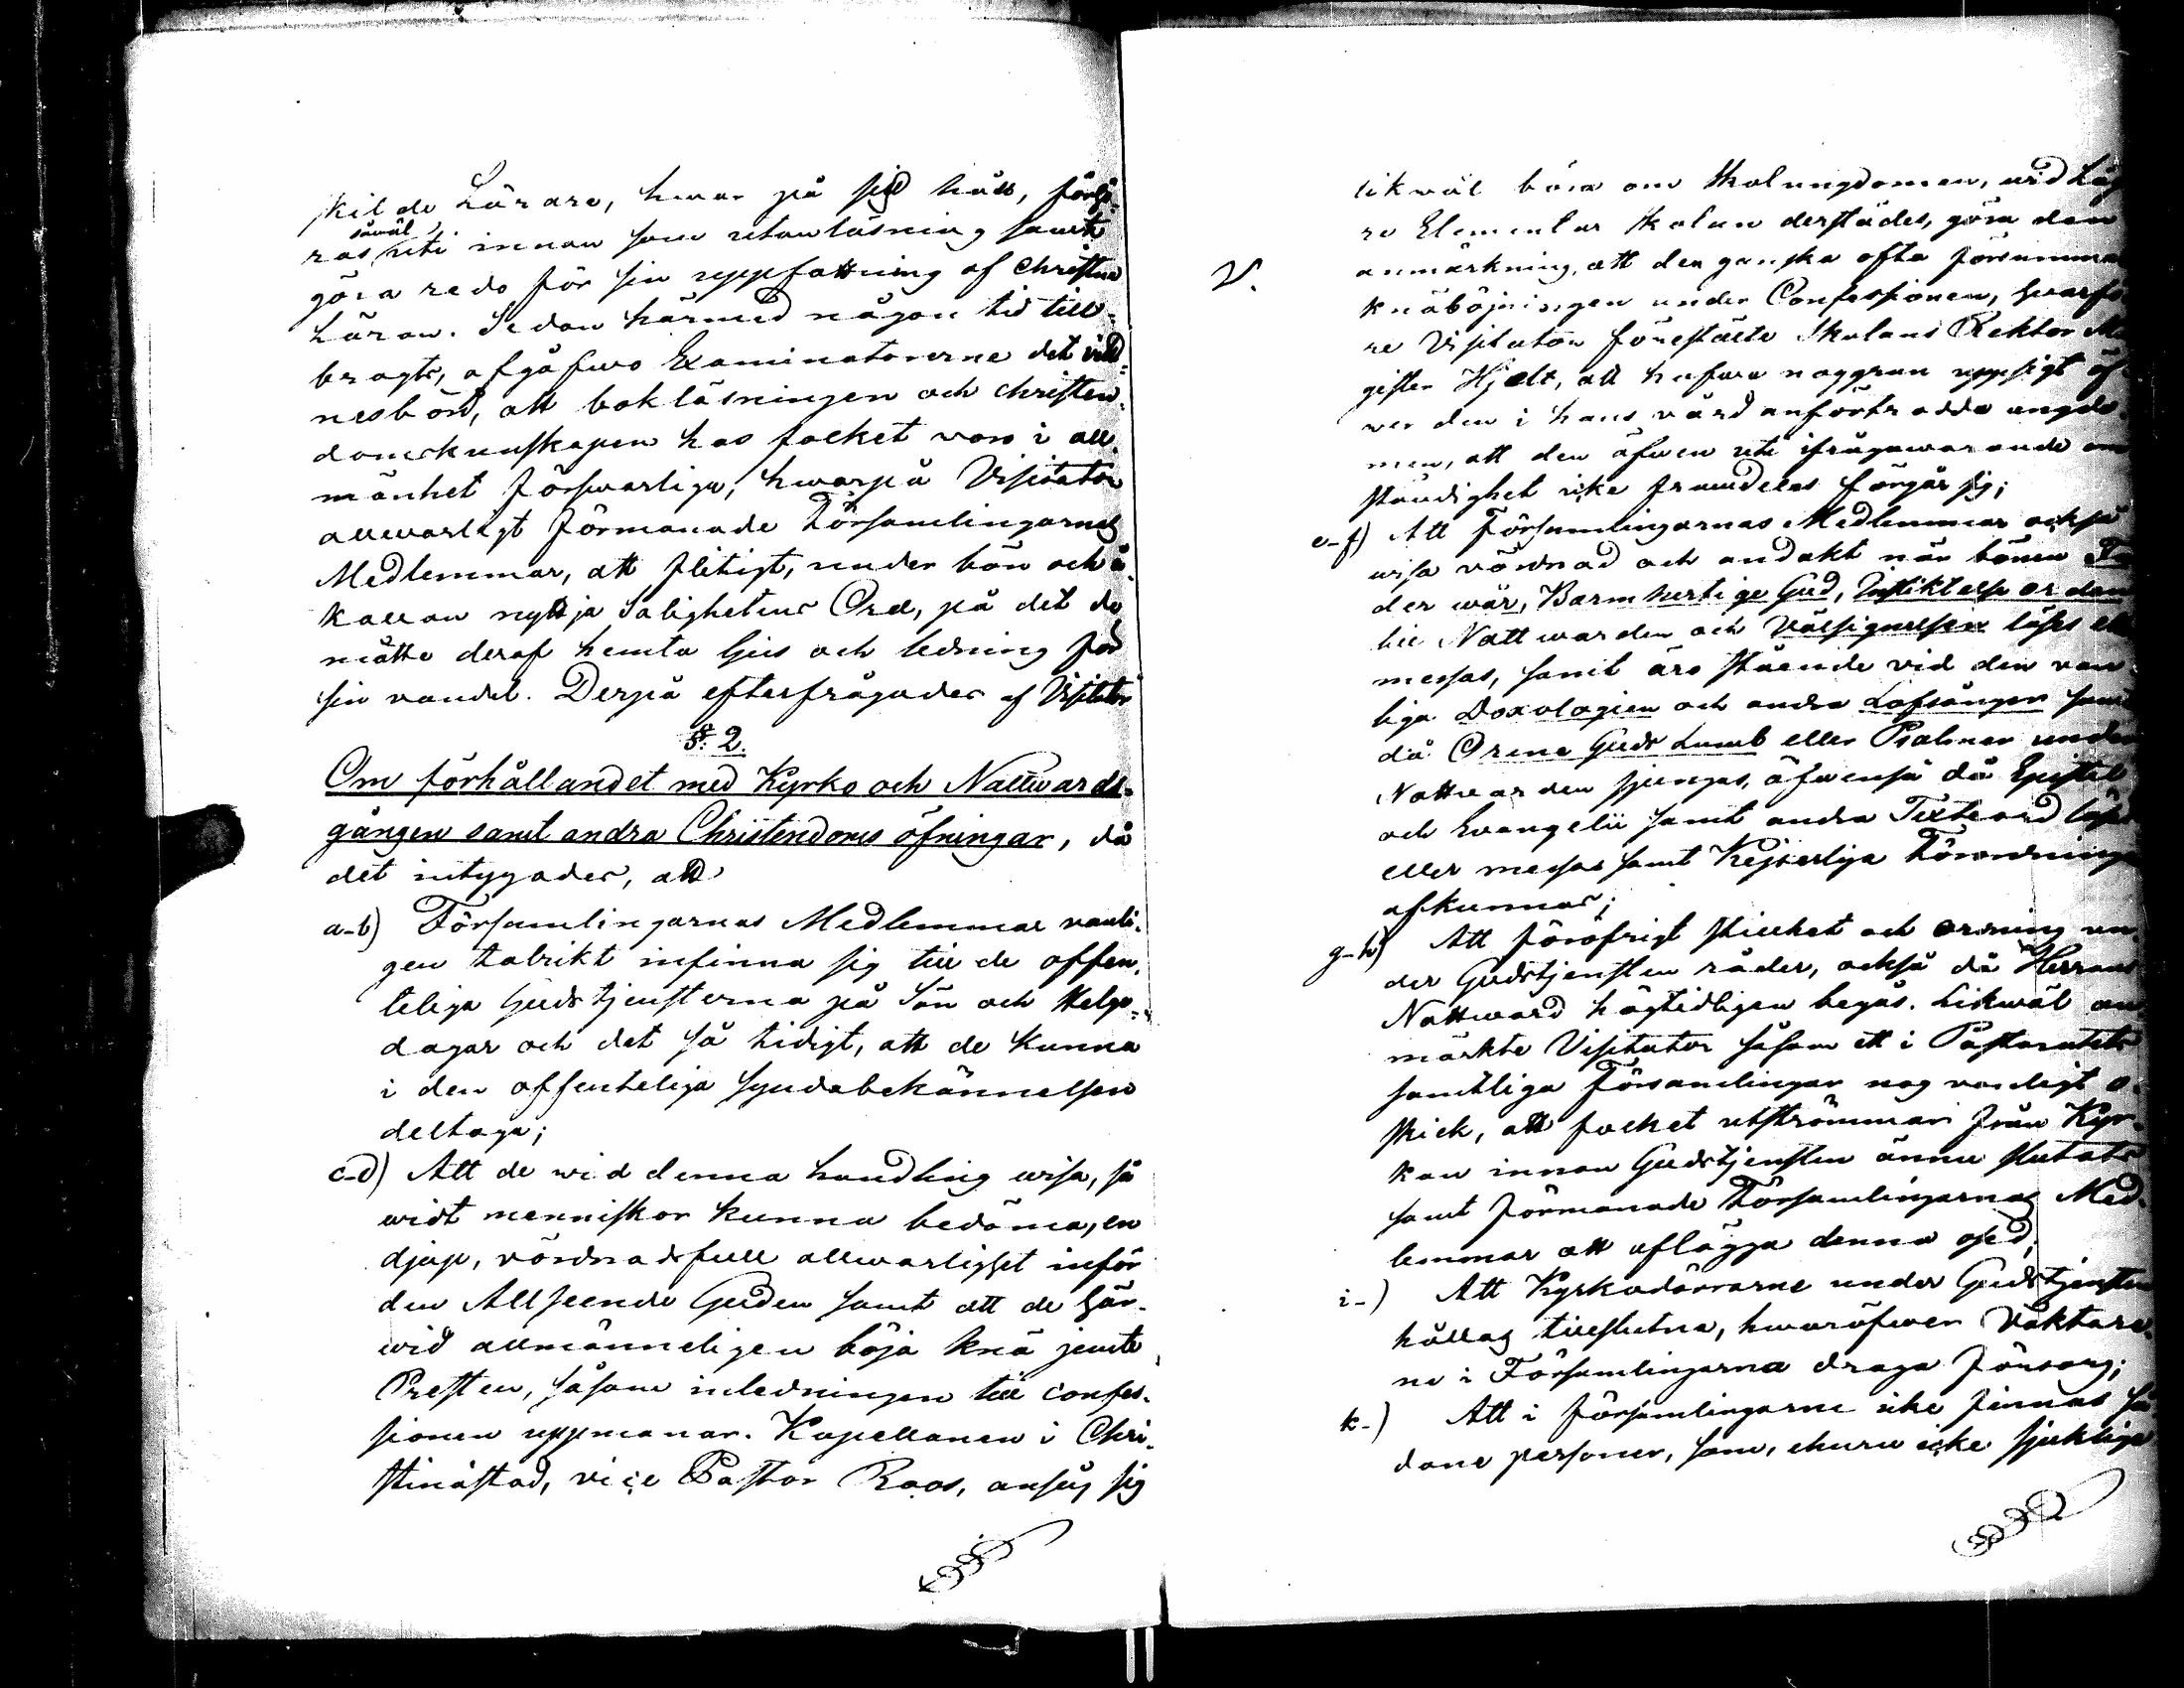 skilde Lärare, hwar på sitt håll, förhö-
ras såväl uti innan som utanläsning samt
göra redo för sin uppfattning af Christna
Läran. Sedan härmed någon tid till-
bragts, afgåfwo Examinatorerne det vitt-
nesbörd, att bokläsningen och christen-
domskunskapen hos folket voro i all-
mänhet försvarliga, hwarpå Visitator
allwarligt förmanade Församlingarnas
Medlemmar, att flitigt, under bön och å-
kallan nyttja Salighetens Ord, på det de
måtte deraf hemta ljus och ledning för
sin vandel. Derpå efterfrågades af Visitator
§. 2.
Om förhållandet med Kyrko och Nattwards-
gången samt andra Christendoms öfningar, då
det intygades, att
a-b) Församlingarnas Medlemmar vanli-
gen talrikt infinna sig till de offen-
teliga Gudstjensterna på Sön och Helge-
dagar och det så tidigt, att de kunna
i den offenteliga syndabekännelsen
deltaga;
c-d) Att de wid denna handling wisa, så
widt menniskor kunna bedöma, en
djup, vördnadsfull allwarlighet inför
den Allseende Guden samt att de här-
wid allmänneligen böja knä jemte
Presten, såsom inledningen till confes-
sionen uppmanar. Kapellanen i Chri-
stinæstad, vice Pastor Roos, ansåg sig
likwäl böra om Skolungdomen, wid Läg
re Elementar Skolan derstädes, göra den
anmärkning, att den ganska ofta försummar
V.
knäböjningen under Confessionen, hwarfö
re Visitator förestälte Skolans Rektor Ma
gister Hjelt, att hafwa noggran uppsigt öf-
wer den i hans vård anförtrodda ungdo-
men, att den äfwen uti ifrågawarande om
ständighet icke framdeles förgår sig;
e-f) Att Församlingarnas Medlemmar också
wisa vördnad och andakt när bönen Fa
der wår, Barmhertige Gud, Instiktelse orden
till Nattwarden och Välsignelsen läses eller
messas, samt äro stående vid den van-
liga Doxologien och andra Lofsånger samt
då O rene Guds Lamb eller Psalmer under
Nattwarden sjunges, äfwenså då Epistel
och Evangelii samt andra Texteord läses
eller messas samt Kejserliga Förordningar
afkunnas;
g-h) Att föröfrigt stillhet och ordning un-
der Gudstjensten råder, också då Herrans
Nattward högtidligen begås. Likwäl an
märkte Visitator såsom ett i Pastoratets
samtliga Församlingar nog vanligt o-
skick, att folket utströmmar från Kyr-
kan innan Gudstjensten ännu slutats
samt förmanade Församlingarnas Med-
lemmar att aflägga denna osed;
i-) Att Kyrkodörrarne under Gudstjensten
hållas tillslutna, hwaröfwer Väktare-
ne i Församlingarna draga försorg;
k-) Att i församlingarne icke finnas så
dane personer, som, ehuru icke sjuklige